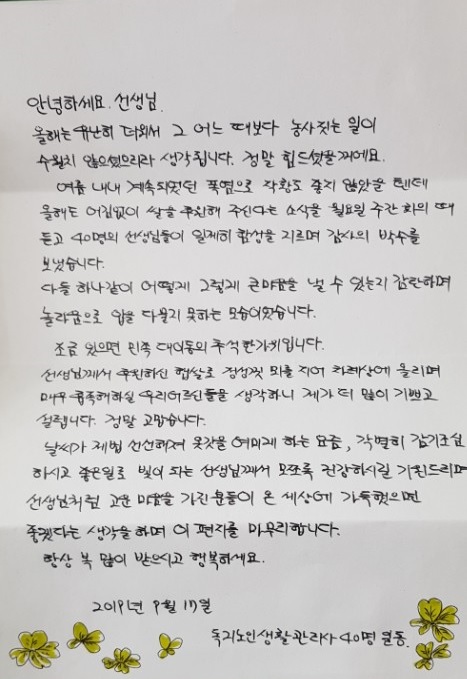 안녕하세요. 선생님.
올해는 유난히 더워서 그 어느 때보다 농사짓는 일이
수월치 않으셨으리라 생각됩니다. 정말 힘드셨을꺼예요.
여름 내내 계속되었던 폭염으로 작황도 좋지 않았을 텐데
올해도 어김없이 쌀을 후원해 주신다는 소식을 월요일 주간 회의 때
듣고 40명의 선생님들이 일제히 함성을 지르며 감사의 박수를
보냈습니다.
다들 하나같이 어떻게 그렇게 큰마음을 낼 수 있는지 감탄하며
놀라움으로 입을 다물지 못하는 모습이었습니다.
조금 있으면 민족 대이동의 추석 한가위입니다.
선생님께서 후원하신 햅쌀로 정성껏 뫼를 지어 차례상에 올리며
매우 흡족해하실 우리어르신들을 생각하니 제가 더 많이 기쁘고
설렙니다. 정말 고맙습니다.
날씨가 제법 선선해져 옷깃을 여미게 하는 요즘, 각별히 감기조심
하시고 좋은일로 빛이 되는 선생님께서 모쪼록 건강하시길 기원드리며
선생님처럼 고운 마음을 가진 분들이 온 세상에 가득했으면
좋겠다는 생각을 하며 이 편지를 마무리합니다.
항상 복 많이 받으시고 행복하세요.
2019년 9월 17일
독거노인생활관리사 40명 일동.